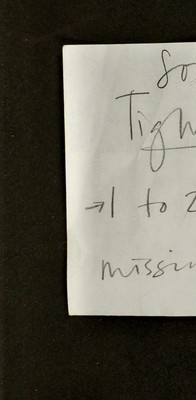 So
Tigh
→1 to 2
missin